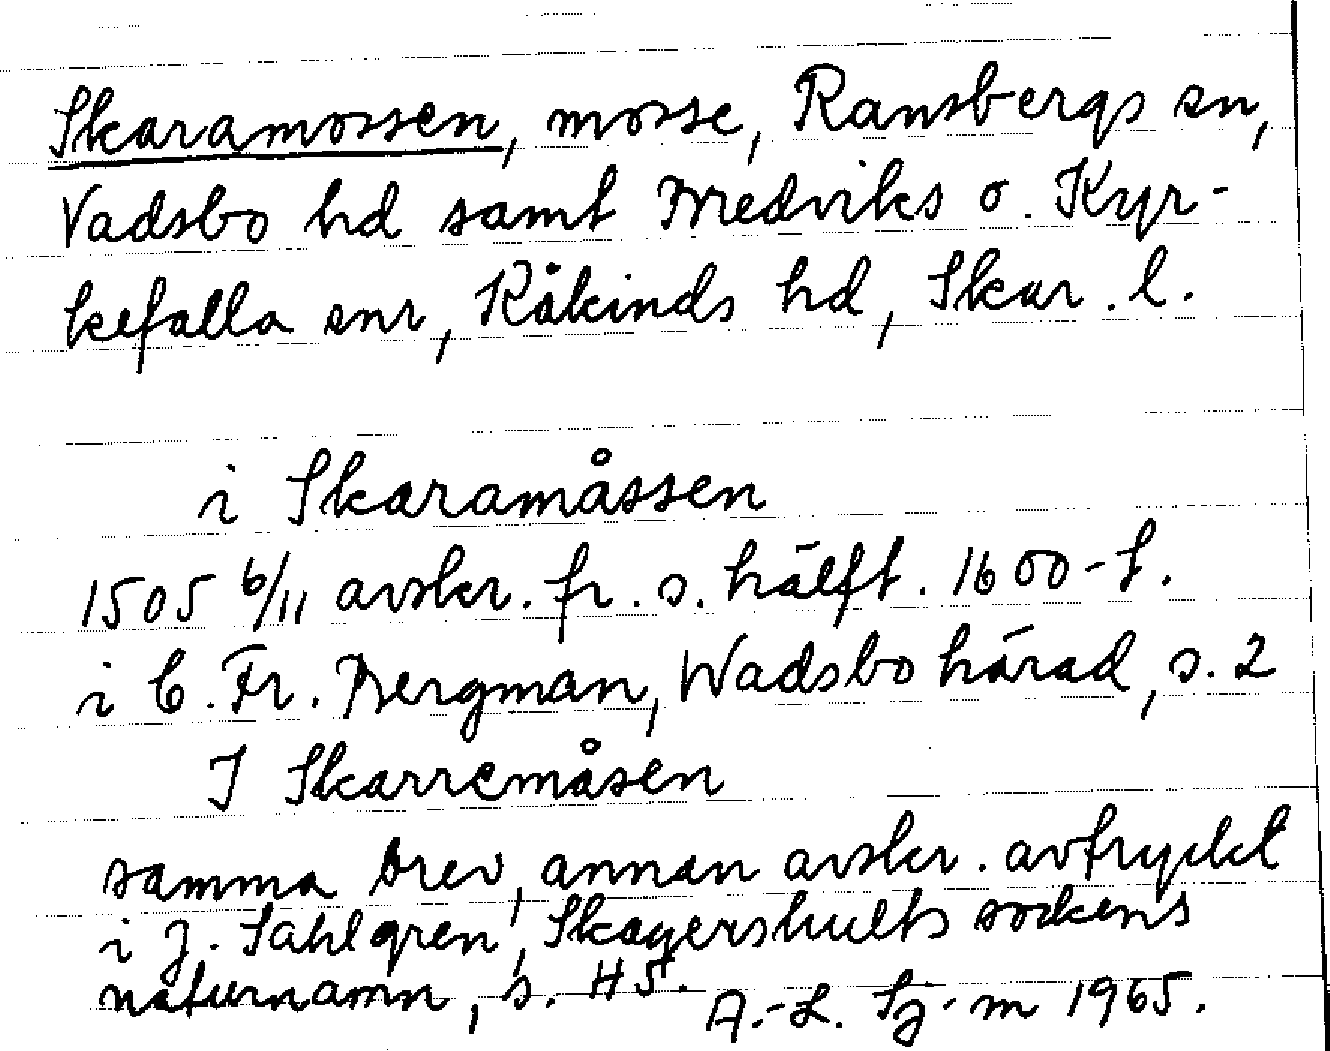 Skaramossen, mosse, Ransbergs sn,
Vadsbo hd samt Bredviks o. Kyr-
kefalla snr, Kåkinds hd, Skar. l.
i Skaramåssen
1505 6/11 avskr. fr. s. hälft. 1600-t.
i C. Fr. Bergman, Wadsbo härad, s. 2
I Skarremåsen
samma brev, annan avskr. avtryckt
i J. Sahlgren, Skagershults sockens
naturnamn, s. 45. A.-L. Sj-m 1965.